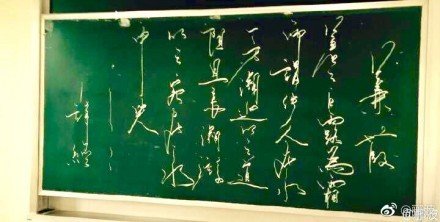 蒹葭
蒹葭苍苍白露為霜
所謂伊人在水
一方溯洄从之道
阻且长溯游
从之宛在水
中央
——詩經